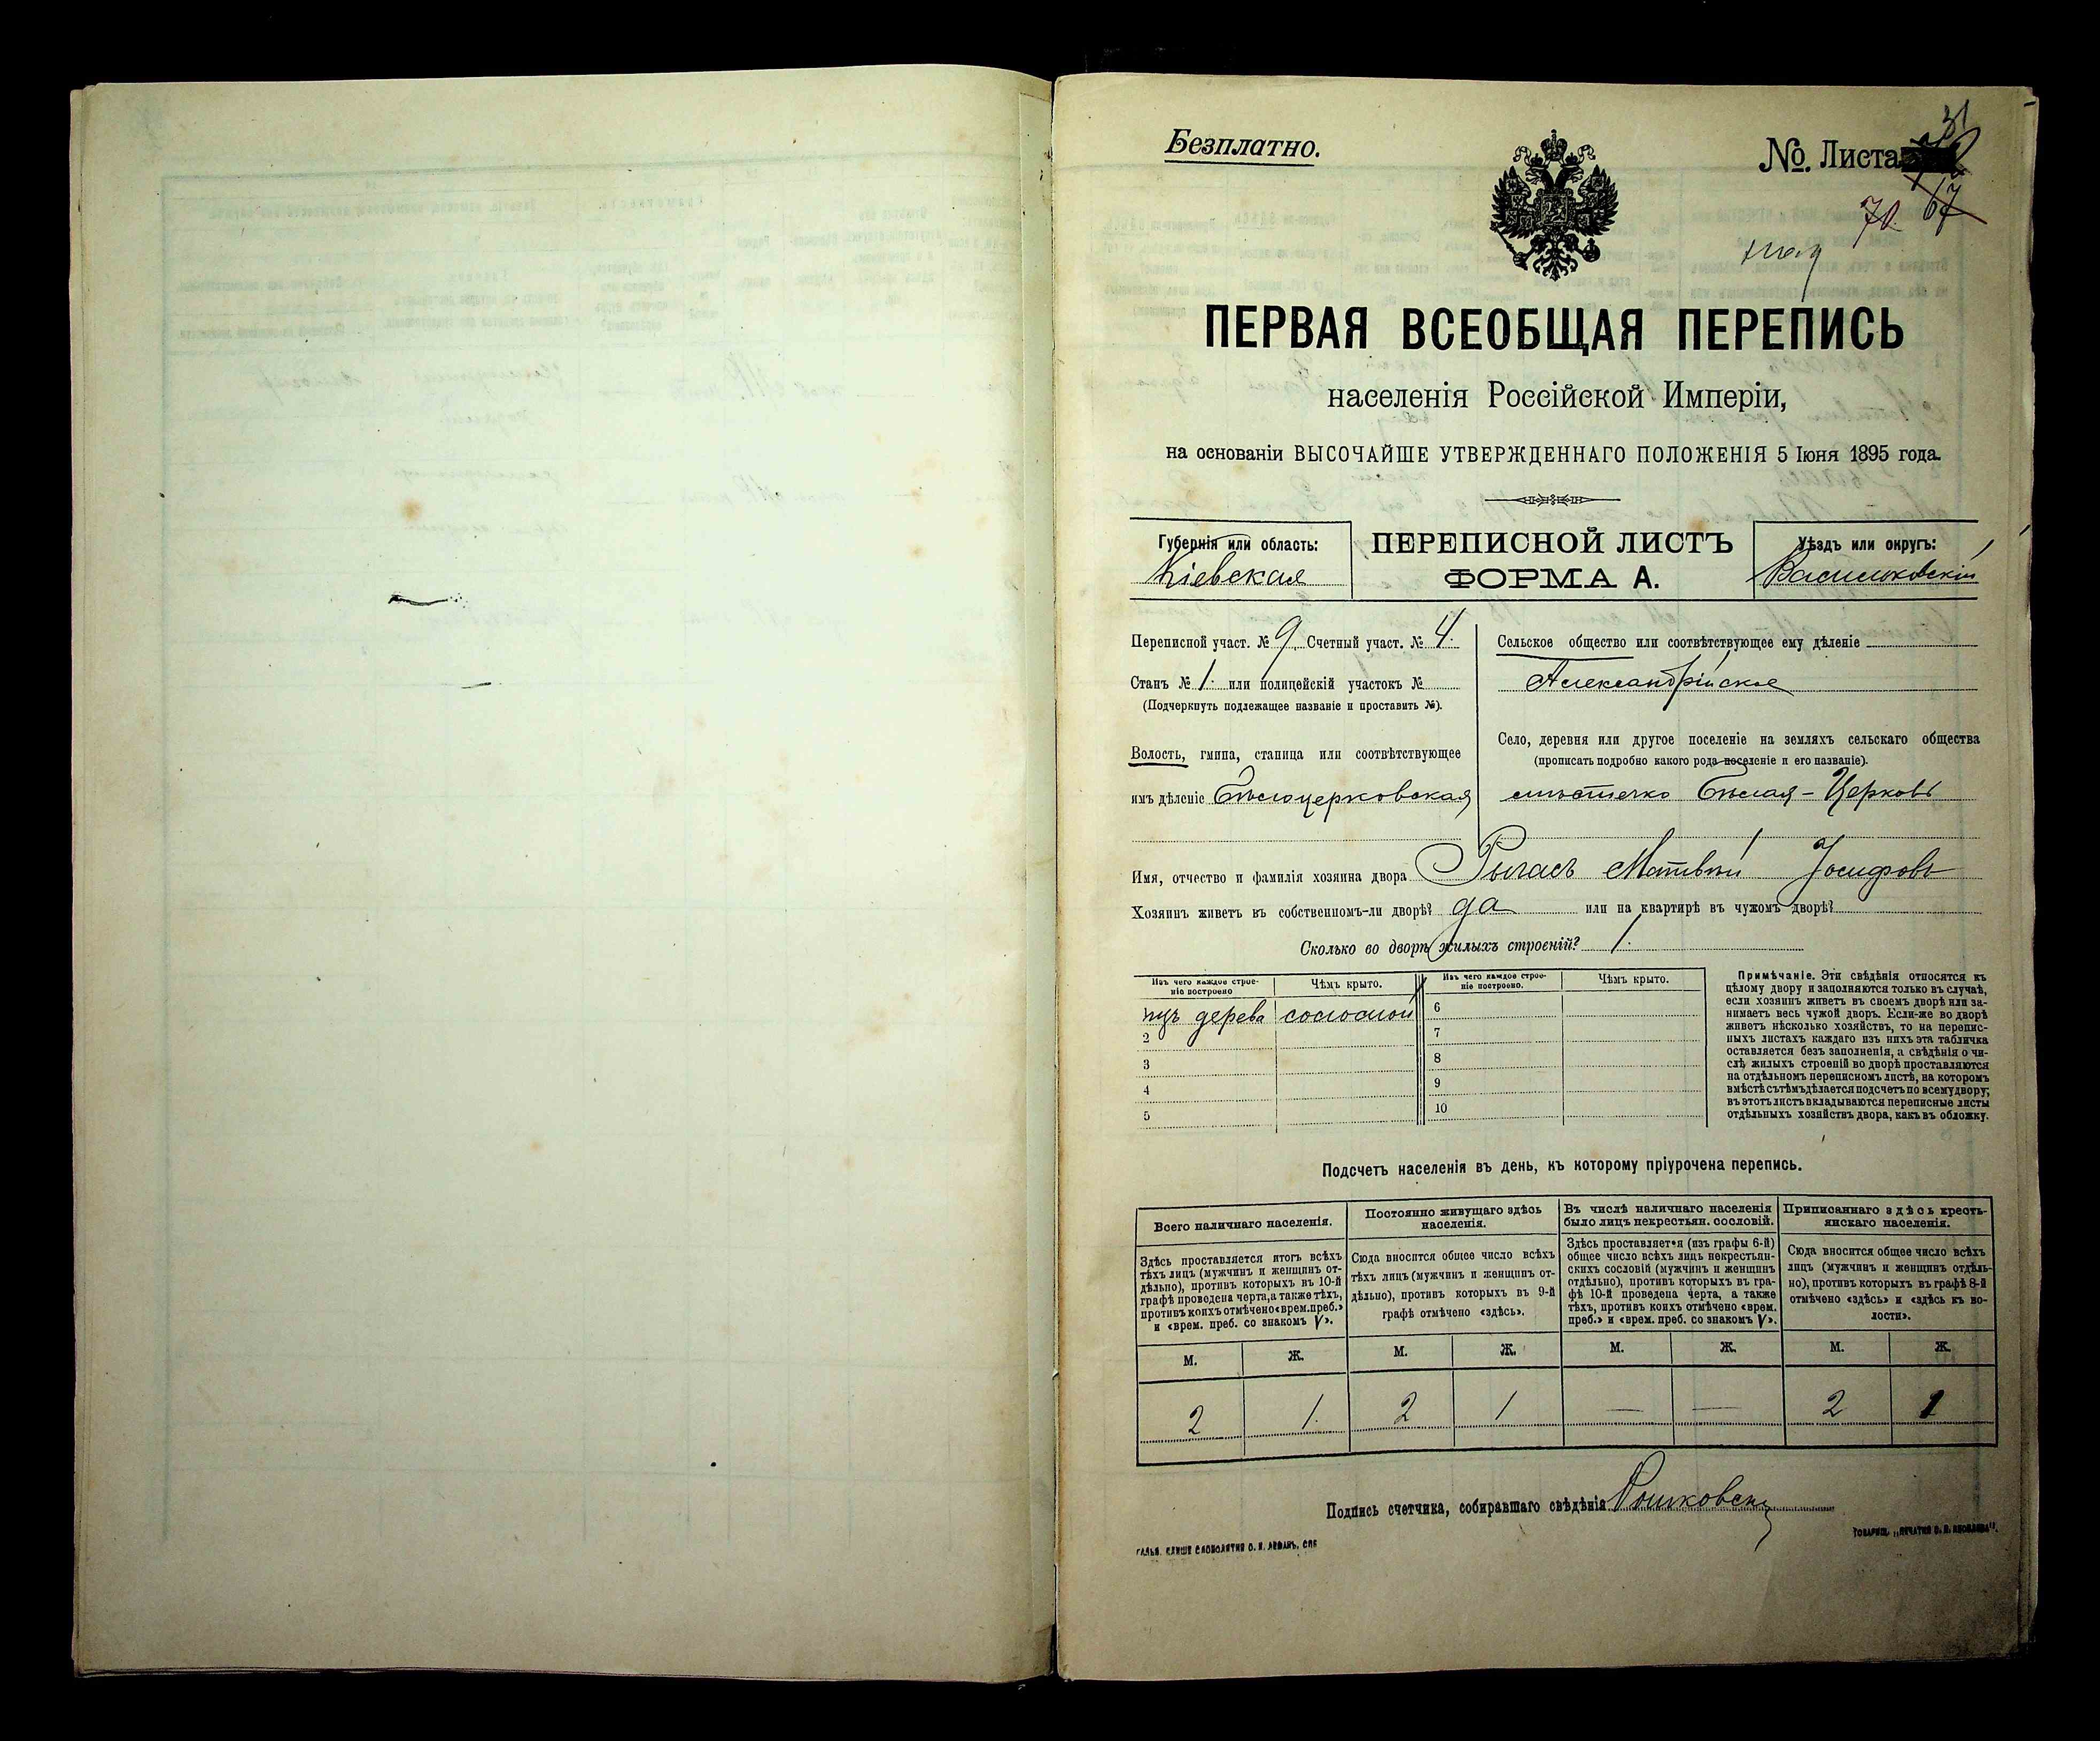 Безплатно.
№. Листа
31
67
70
ПЕРВАЯ ВСЕОБЩАЯ ПЕРЕПИСЬ
населенія Россійской Имперіи,
на основаніи ВЫСОЧАЙШЕ УТВЕРЖДЕННАГО ПОЛОЖЕНІЯ 5 Іюня 1895 года.
Губернія или область:
Кіевская
ПЕРЕПИСНОЙ ЛИСТЪ
ФОРМА А.
Уѣздъ или округъ:
Васильковскій
Переписной участ. № 9. Счетный участ. № 4.
Станъ № 1. или полицейскій участокъ №
(Подчеркнуть подлежащее названіе и проставить №).
Волость, гмина, станица или соотвѣтствующее
имъ дѣленіе Бѣлоцерковская
Сельское общество или соотвѣтствующее ему дѣленіе
Александрійское
Село, деревня или другое поселеніе на земляхъ сельскаго общества
(прописать подробно какого рода поселеніе и его названіе).
мѣстечко Бѣлая-Церковь
Имя, отчество и фамилія хозяина двора Рыгасъ Матвѣй Іосифовъ
Хозяинъ живетъ въ собственномъ-ли дворѣ? да или на квартирѣ въ чужомъ дворѣ?
Сколько во дворѣ жилыхъ строеній? 1.
Изъ чего каждое строе-
ніе построено
Чѣмъ крыто.
Изъ чего каждое строе-
ніе построено.
Чѣмъ крыто.
изъ дерева соломой 6
2 7
3 8
4 9
5 10
Примѣчаніе. Эти свѣдѣнія относятся къ
цѣлому двору и заполняются только въ случаѣ,
если хозяинъ живетъ въ своемъ дворѣ или за-
нимаетъ весь чужой дворъ. Если-же во дворѣ
живетъ нѣсколько хозяйствъ, то на перепис-
ныхъ листахъ каждаго изъ нихъ эта табличка
оставляется безъ заполненія, а свѣдѣнія о чи-
слѣ жилыхъ строеній во дворѣ проставляются
на отдѣльномъ переписномъ листѣ, на которомъ
вмѣстѣ съ тѣмъ дѣлается подсчетъ по всему двору;
въ этотъ листъ вкладываются переписные листы
отдѣльныхъ хозяйствъ двора, какъ въ обложку.
Подсчетъ населенія въ день, къ которому пріурочена перепись.
Всего наличнаго населенія.
Постоянно живущаго здѣсь
населенія.
Въ числѣ наличнаго населенія
было лицъ некрестьян. сословій.
Приписаннаго здѣсь кресть-
янскаго населенія.
Здѣсь проставляется итогъ всѣхъ
тѣхъ лицъ (мужчинъ и женщинъ от-
дѣльно), противъ которыхъ въ 10-й
графѣ проведена черта, а также тѣхъ,
противъ коихъ отмѣчено «врем. преб.»
и «врем. преб. со знакомъ V».
Сюда вносится общее число всѣхъ
тѣхъ лицъ (мужчинъ и женщинъ от-
дѣльно), противъ которыхъ въ 9-й
графѣ отмѣчено «здѣсь».
Здѣсь проставляется (изъ графы 6-й)
общее число всѣхъ лицъ некрестьян-
скихъ сословій (мужчинъ и женщинъ
отдѣльно), противъ которыхъ въ гра-
фѣ 10-й проведена черта, а также
тѣхъ, противъ коихъ отмѣчено «врем.
преб.» и «врем. преб. со знакомъ V».
Сюда вносится общее число всѣхъ
лицъ (мужчинъ и женщинъ отдѣль-
но), противъ которыхъ въ графѣ 8-й
отмѣчено «здѣсь» и «здѣсь къ во-
лости».
М. Ж. М. Ж. М. Ж. М. Ж.
2 1. 2 1 — — 2 1
Подпись счетчика, собиравшаго свѣдѣнія